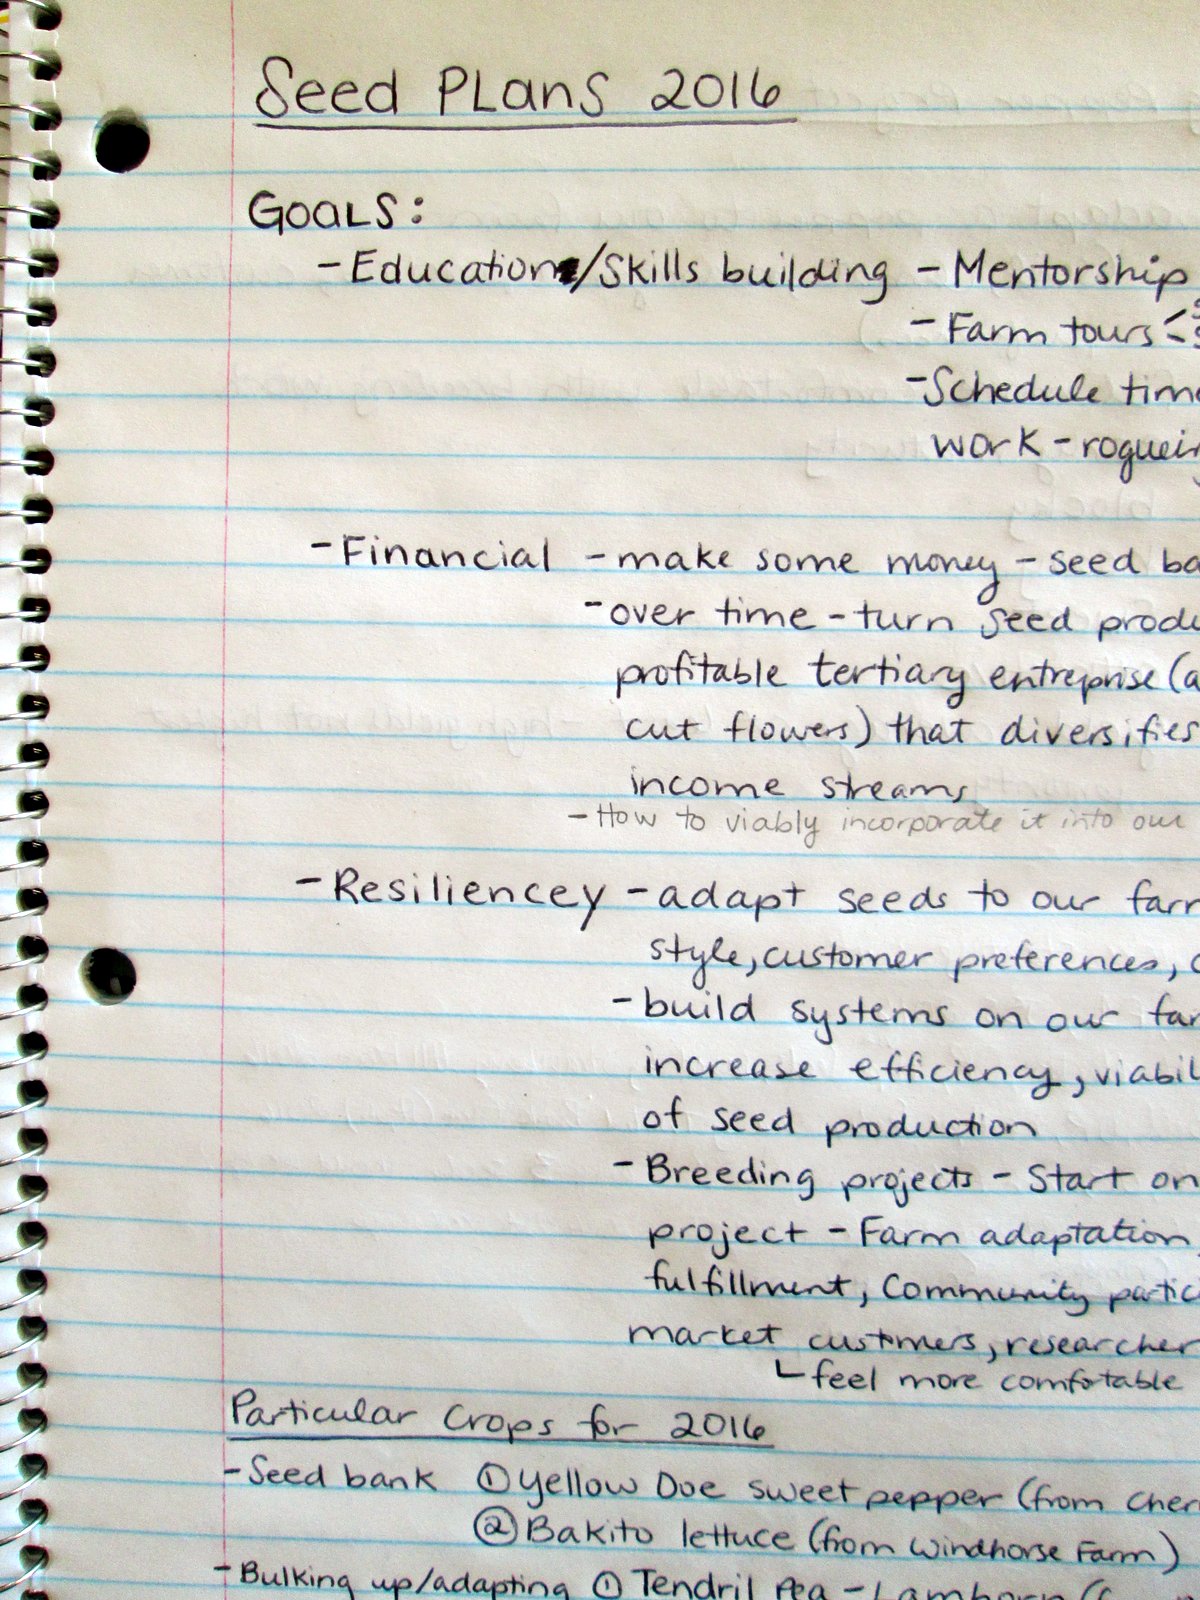 Seed Plans 2016
GOALS:
- Education/Skills building - Mentorship
- Farm tours <
- Schedule time
work - roguein
- Financial - make some money - seed ba
- over time - turn seed produ
profitable tertiary entreprise (a
cut flowers) that diversifies
income streams
- How to viably incorporate it into our
- Resiliencey - adapt seeds to our farm
style, customer preferences, c
- build systems on our far
increase efficiency, viabil
of seed production
- Breeding projects - Start on
project - Farm adaptation,
fulfillment, Community partic
market customers, researcher
└ feel more comfortable
Particular Crops for 2016
- Seed bank ① Yellow Doe sweet pepper (from Cher
② Bakito lettuce (from Windhorse Farm)
- Bulking up/adapting ① Tendril Pea - Lamborn (